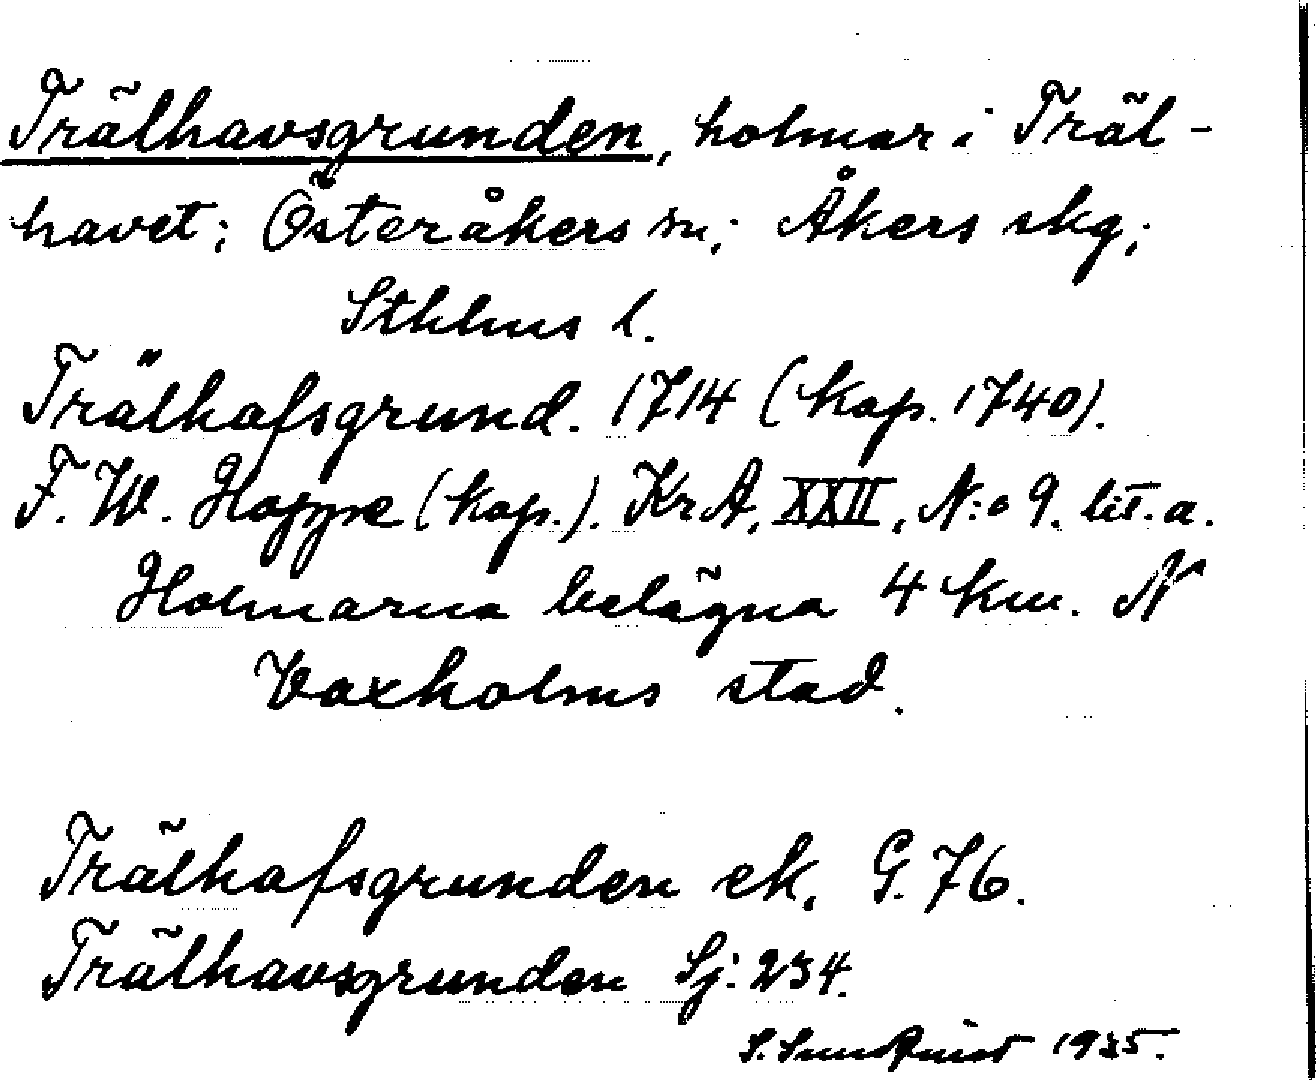 Trälhavsgrunden, holmar i Träl-
havet; Österåkers sn; Åkers skg;
Sthlms l.
Trälhafsgrund. 1714 (kop. 1740).
F. W. Hoppe (kop.). KrA, XXII, N:o 9. lit. a.
Holmarna belägna 4 km. N
Vaxholms stad.
Trälhafsgrunden ek. G. 76.
Trälhavsgrunden Sj: 234.
S. Sundquist 1935.